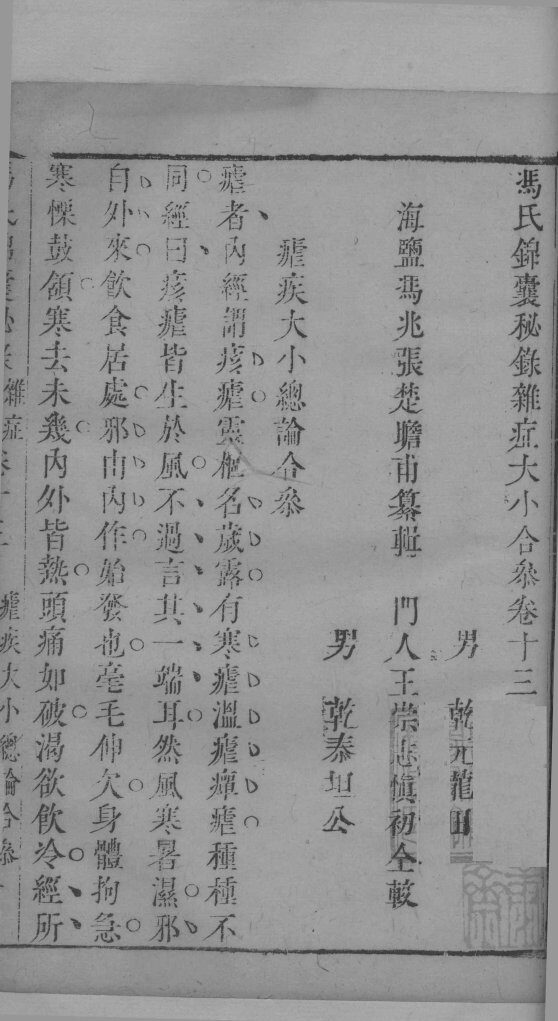 馮氏錦囊秘錄雜症大小合叅卷十三
男 乾元龍田
海鹽馮兆張楚瞻甫纂輯 門人王崇志慎初仝較
男 乾泰坦公
瘧疾大小總論合叅
瘧者內經謂痎瘧靈樞名歲露有寒瘧溫瘧癉瘧種種不
同經曰痎瘧皆生於風不過言其一端耳然風寒暑濕邪
自外來飲食居處邪由內作始發也毫毛伸欠身體拘急
寒慄鼓頷寒去未幾內外皆熱頭痛如破渴欲飲冷經所
馮氏錦囊秘錄雜症卷十三 瘧疾大小總論合叅 一